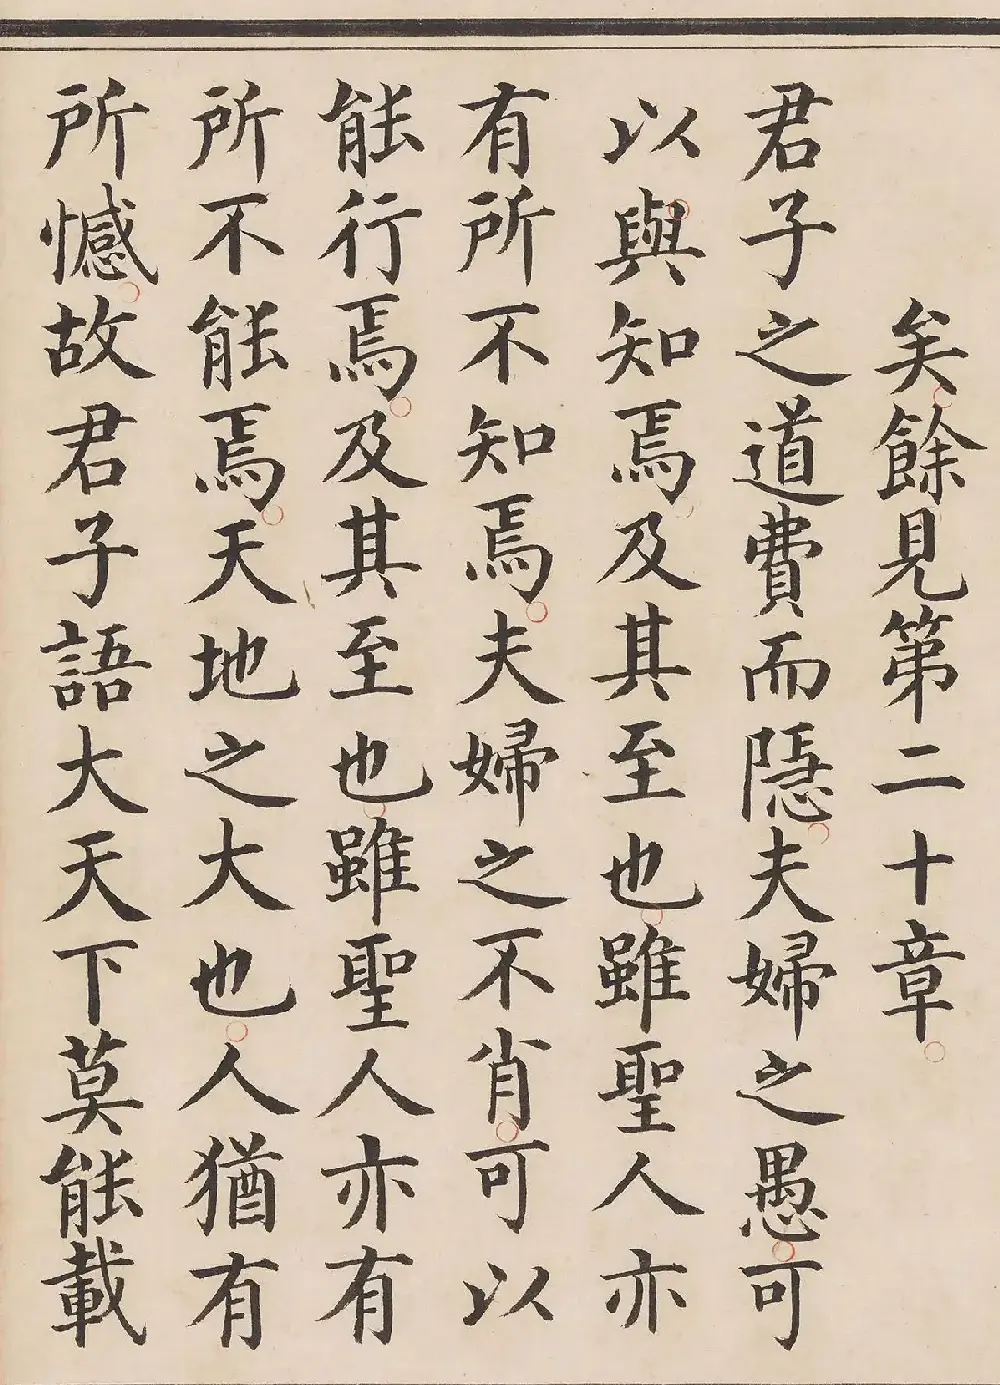 矣餘見第二十章
君子之道費而隱夫婦之愚可
以與知焉及其至也雖聖人亦
有所不知焉夫婦之不肖可以
能行焉及其至也雖聖人亦有
所不能焉天地之大也人猶有
所憾故君子語大天下莫能載